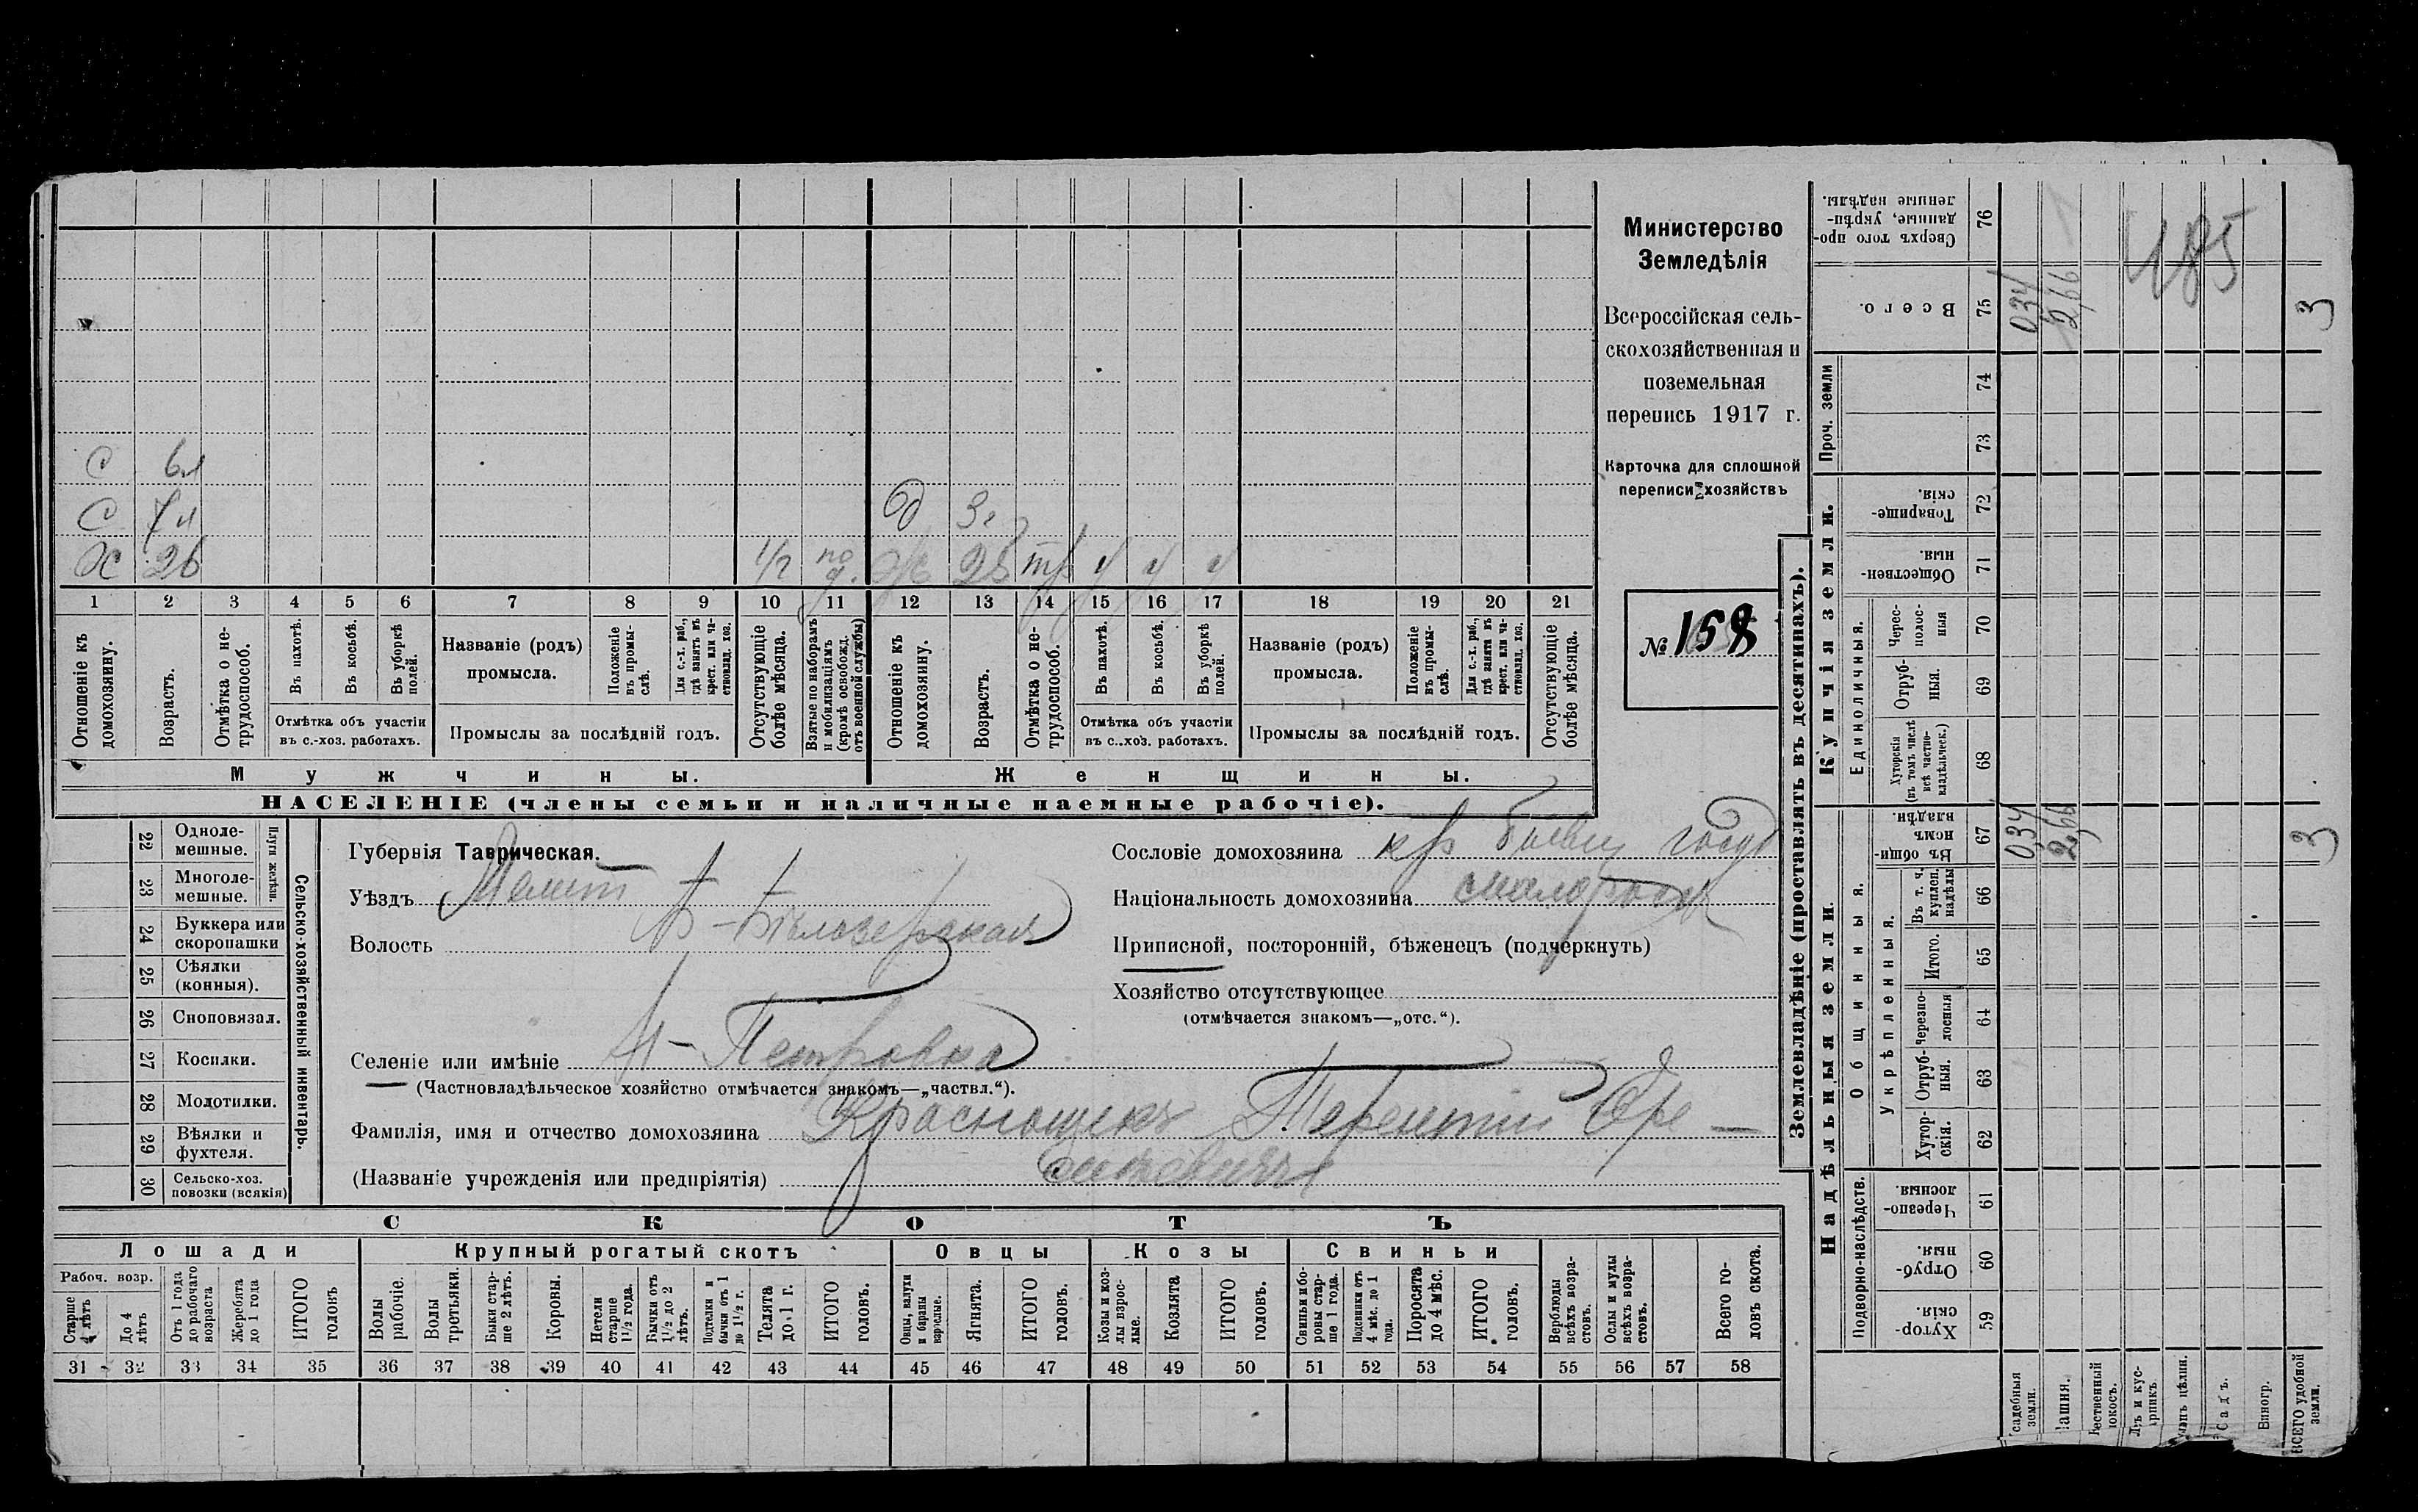 С 6л
С 7л Д 3г
Х 26 1/2 ж 28 тр ч ч ч
1 2 3 4 5 6 7 8 9 10 11 12 13 14 15 16 17 18 19 20 21
Отношеніе къ домохозяину.
Возрастъ.
Отмѣтка о не-трудоспособ.
Въ пахотѣ.
Въ косьбѣ.
Въ уборкѣ полей.
Отмѣтка объ участіи въ с.-хоз. работахъ.
Названіе (родъ) промысла.
Положеніе въ промы-слѣ.
Для с.-х. раб., гдѣ занятъ въ крест. или ча-стновлад. хоз.
Промыслы за послѣдній годъ.
Отсутствующіе болѣе мѣсяца.
Взятые по наборамъ и мобилизаціямъ (кромѣ освобожд. отъ военной службы)
Отношеніе къ домохозяину.
Возрастъ.
Отмѣтка о не-трудоспособ.
Въ пахотѣ.
Въ косьбѣ.
Въ уборкѣ полей.
Отмѣтка объ участіи въ с.-хоз. работахъ.
Названіе (родъ) промысла.
Положеніе въ промы-слѣ.
Для с.-х. раб., гдѣ занята въ крест. или ча-стновлад. хоз.
Промыслы за послѣдній годъ.
Отсутствующіе болѣе мѣсяца.
Мужчины. Женщины.
НАСЕЛЕНІЕ (члены семьи и наличные наемные рабочіе).
Министерство
Земледѣлія
Всероссійская сель-
скохозяйственная и
поземельная
перепись 1917 г.
Карточка для сплошной
переписи хозяйствъ
№ 158
22 Одноле-мешные.
23 Многоле-мешные.
Плуги желѣзн.
24 Буккера или скоропашки
25 Сѣялки (конныя).
26 Сноповязал.
27 Косилки.
28 Молотилки.
29 Вѣялки и фухтеля.
30 Сельско-хоз. повозки (всякія)
Сельско-хозяйственный инвентарь.
Губернія Таврическая.
Уѣздъ Мелит
Волость Б-Бѣлозерская
Селеніе или имѣніе Н-Петровка
(Частновладѣльческое хозяйство отмѣчается знакомъ—„частвл.“).
Фамилія, имя и отчество домохозяина Краснощекъ Терентій
(Названіе учрежденія или предпріятія)
Сословіе домохозяина кр бывш госуд
Національность домохозяина малоросс
Приписной, посторонній, бѣженецъ (подчеркнуть)
Хозяйство отсутствующее
(отмѣчается знакомъ—„отс.“).
СКОТЪ
Лошади Крупный рогатый скотъ Овцы Козы Свиньи
Рабоч. возр.
Старше 4 лѣтъ
До 4 лѣтъ
Отъ 1 года до рабочаго возраста
Жеребята до 1 года
ИТОГО головъ
Волы рабочіе.
Волы третьяки.
Быки стар-ше 2 лѣтъ.
Коровы.
Нетели старше 1½ года.
Бычки отъ 1½ до 2 лѣтъ.
Подтелки и бычки отъ 1 до 1½ г.
Телята до 1 г.
ИТОГО головъ.
Овцы, валухи и бараны взрослые.
Ягнята.
ИТОГО головъ.
Козы и коз-лы взрос-лые.
Козлята
ИТОГО головъ.
Свиньи и бо-ровы стар-ше 1 года.
Подсвинки отъ 4 мѣс. до 1 года.
Поросята до 4 мѣс.
ИТОГО головъ.
Верблюды всѣхъ возра-стовъ.
Ослы и мулы всѣхъ возра-стовъ.
Всего го-ловъ скота.
31 32 33 34 35 36 37 38 39 40 41 42 43 44 45 46 47 48 49 50 51 52 53 54 55 56 57 58
Землевладѣніе (проставлять въ десятинахъ).
Надѣльныя земли. Купчія земли. Проч. земли
Подворно-наслѣдств.
Общинныя.
Укрѣпленныя.
Единоличныя.
59 Хутор-скія.
60 Отруб-ныя.
61 Черезпо-лосныя.
62 Хутор-скія.
63 Отруб-ныя.
64 Черезпо-лосныя
65 Итого.
66 Въ т. ч. куплен. надѣлы
67 Въ общи-номъ владѣн. 034 2,66 3
68 Хуторскія (въ томъ числѣ всѣ частно-владѣльческ.)
69 Отруб-ныя.
70 Черес-полос-ныя
71 Обществен-ныя.
72 Товарище-скія.
73
74
75 Всего. 034 2,66 3
76 Сверхъ того про-данные, укрѣп-ленные надѣлы.
485
садебныя земли.
ашня.
ественный окосъ.
Садъ.
Виногр.
ВСЕГО удобной земли.